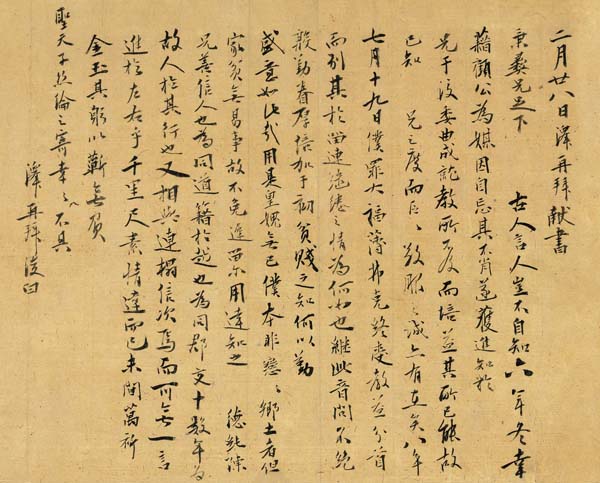 二月廿八日澤再拜獻書
秉彝兄足下 古人言人豈不自知六年冬幸
藉顧公為媒因自忘其不肖遂獲進知於
兄于後委曲成就教所不及而倍益其所已能故
已知 兄之度而區〻敬服之誠亦有在矣八年
七月十九日僕罪大福薄弗克終受教益分首
而別其於留連繾綣之情為何如也繼此音問不絕
殷勤眷厚倍加于初貧賤之知何以勤
盛意如此哉用是皇愧無已僕本非戀〻鄉土者但
家貧無易事故不免進留用達知之 德純陳
兄善信人也為同道籍於越也為同郡交十數年為
故人於其行也又相與連榻信次焉而可無一言
進於左右乎千里尺素情達而已未間萬祈
金玉其躬以蘄無負
聖天子絲綸之寄幸〻不具
澤再拜